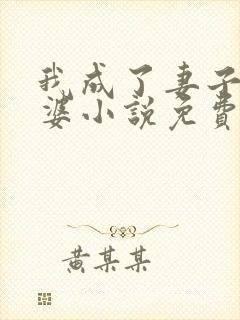 我成了妻子
婆小説免費
黄某某